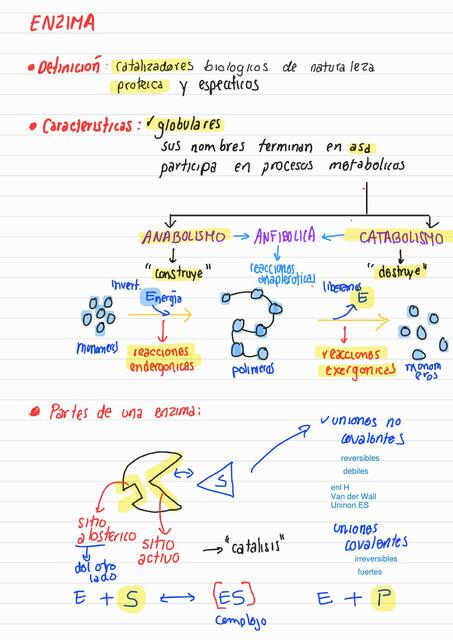 ENZIMA
• Definición: catalizadores biologicos de naturaleza
proteica y especificos
• Caracteristicas: ✓ globulares
sus nombres terminan en asa
participa en procesos metabolicos
ANABOLISMO → ANFIBOLICA ← CATABOLISMO
"construye"
reacciones
anapleroticas
"destruye"
invert.
Energia
liberamos
E
monomeros
reacciones
endergonicas
polimeros
reacciones
exergonicas
monom
eros
• Partes de una enzima:
S
sitio
alosterico
del otro
lado
sitio
activo
→ "catalisis"
✓ uniones no
covalentes
reversibles
debiles
enl H
Van der Wall
Uninon ES
uniones
covalentes
irreversibles
fuertes
E + S ↔ [ES] E + P
complejo